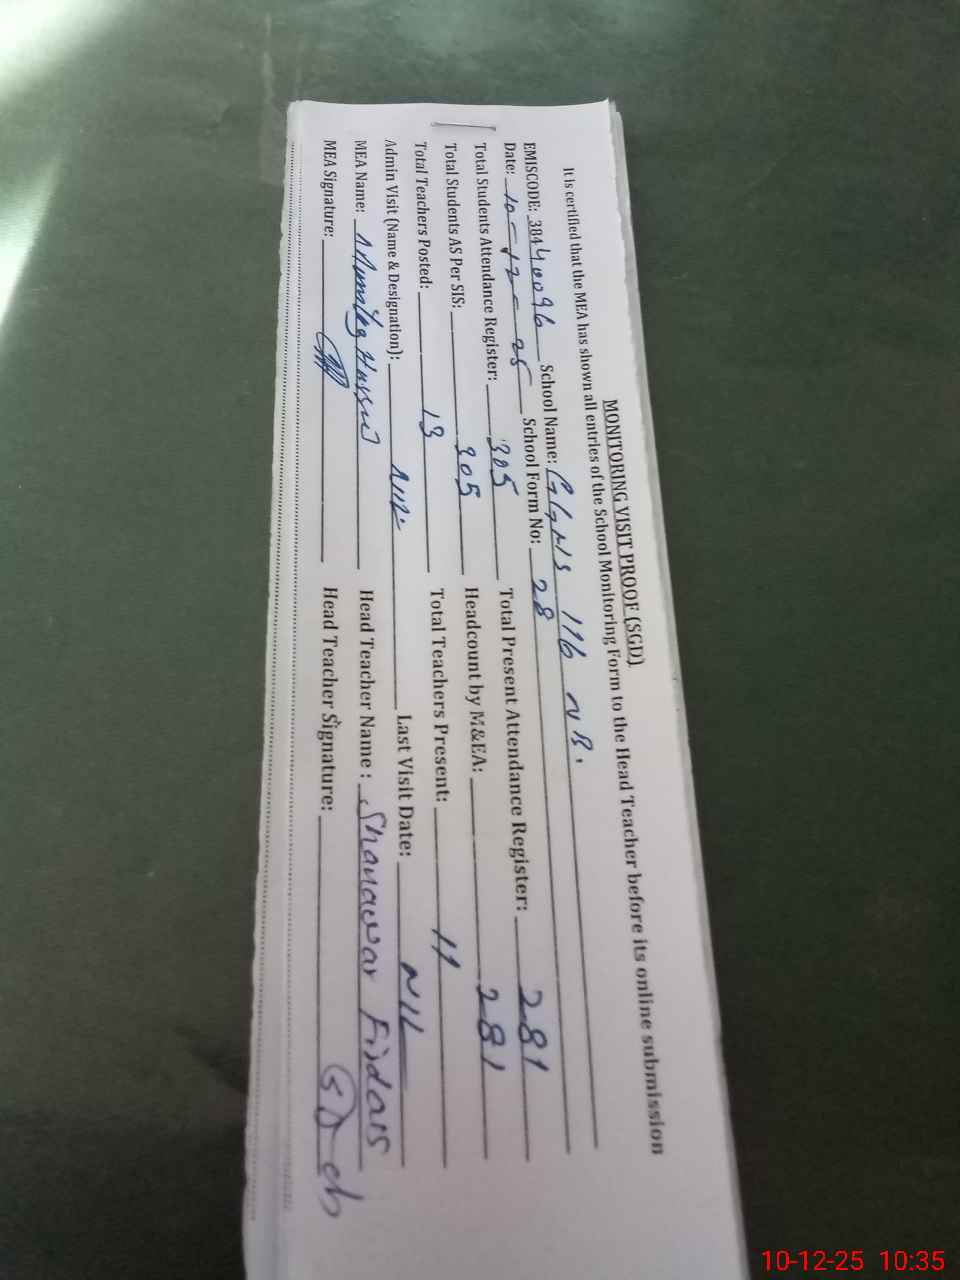 MONITORING VISIT PROOF (SGD)
It is certified that the MEA has shown all entries of the School Monitoring Form to the Head Teacher before its online submission
EMISCODE: 38440096 School Name: GGHS 116 NB.
Date: 10-12-25 School Form No: 28
Total Students Attendance Register: 305 Total Present Attendance Register: 281
Total Students AS Per SIS: 305 Headcount by M&EA: 281
Total Teachers Posted: 13 Total Teachers Present: 11
Admin Visit (Name & Designation): NIL Last Visit Date: NIL
MEA Name: Hussain Head Teacher Name : Shanawar Firdais
MEA Signature: Head Teacher Signature:
10-12-25 10:35